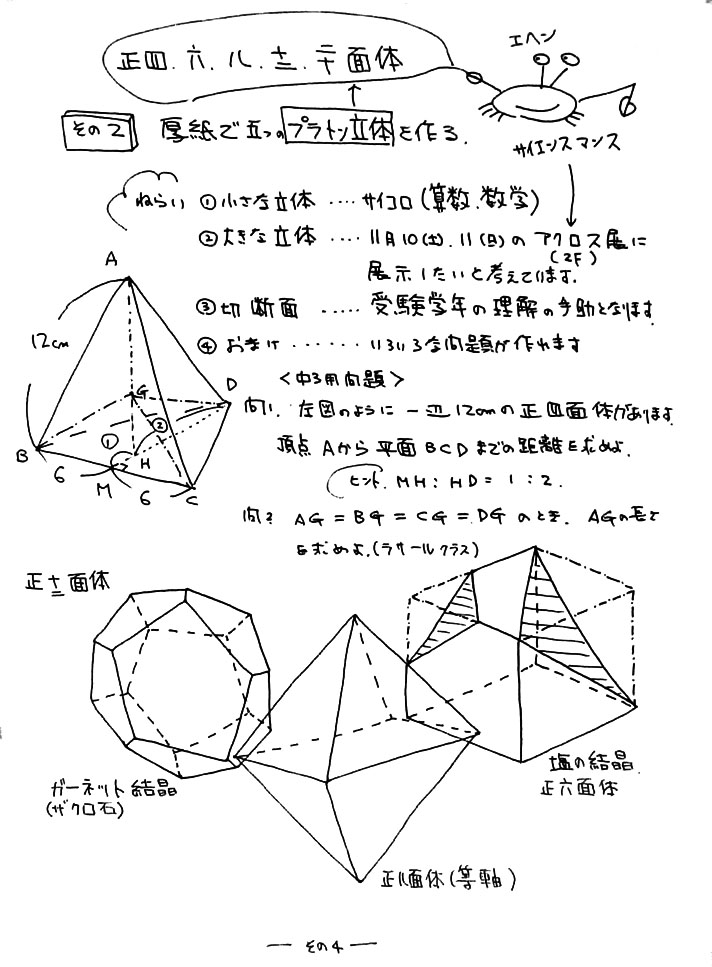 正四.六.八.十二.二十面体
エヘン
サイエンスマンス
その2 厚紙で五つのプラトン立体を作る.
ねらい ①小さな立体 ‥‥ サイコロ(算数.数学)
②大きな立体 ‥‥ 11月10(土).11(日)のアクロス展に
(2F)
展示したいと考えています.
③切断面 ‥‥‥ 受験学年の理解の手助となります
④おまけ ‥‥‥‥ いろいろな問題が作れます
<中3用問題>
問1. 左図のように一辺12cmの正四面体があります.
頂点Aから平面BCDまでの距離を求めよ.
ヒント. MH:HD=1:2.
問2 AG=BG=CG=DGのとき. AGの長さ
を求めよ.(ラサールクラス)
A
12cm
G
D
①
②
B
H
6
M
6
C
正十二面体
ガーネット結晶
(ザクロ石)
塩の結晶
正六面体
正八面体(等軸)
— その4 —